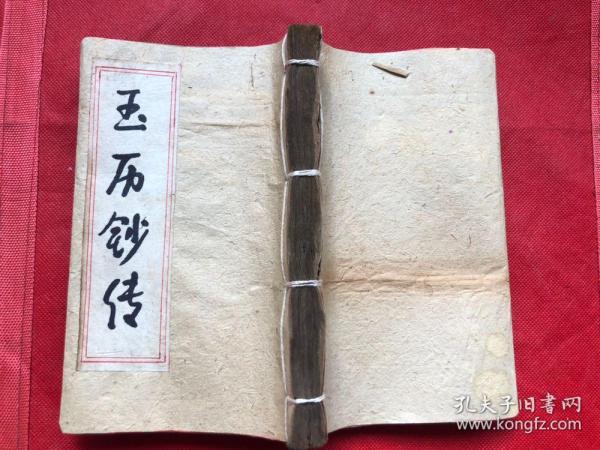 玉历钞传
孔夫子旧書网
www.kongfz.com